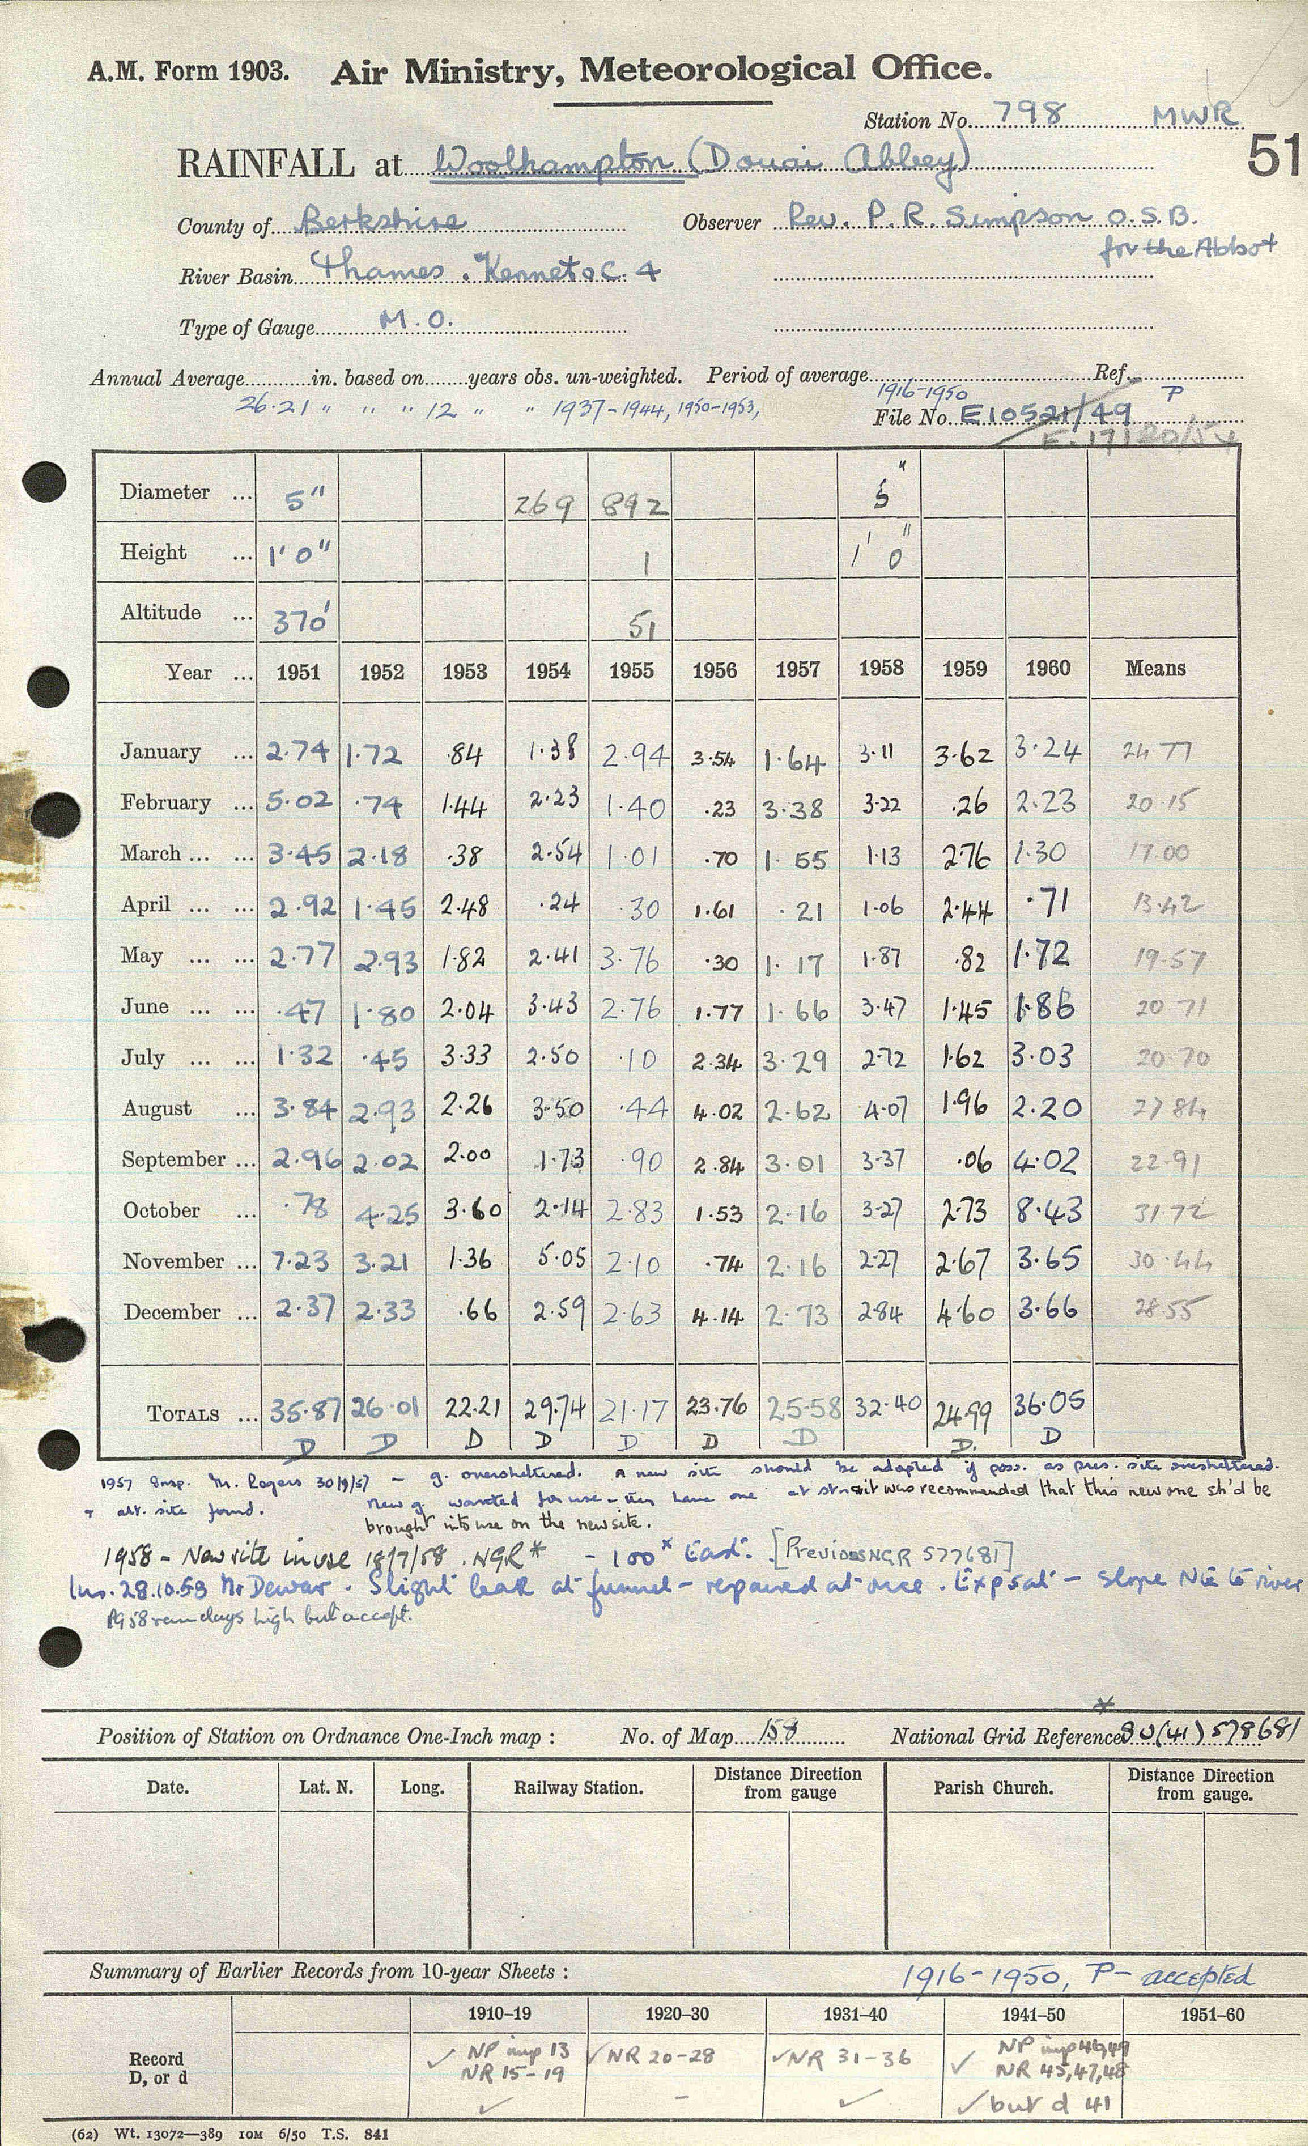 A.M. Form 1903. Air Ministry, Meteorological Office.
Station No. 798 MWR
51
RAINFALL at Woolhampton (Douai Abbey)
County of Berkshire Observer Rev. P. R. Simpson O.S.B.
for the Abbot
River Basin Thames. Kennet &c. 4
Type of Gauge M.O.
Annual Average in. based on years obs. un-weighted. Period of average Ref.
26.21 " " " 12 " " 1937-1944, 1950-1953, 1916-1950 P
File No. E10521/49
E.17120/54
Diameter ... 5" 269 892 5"
Height ... 1' 0" 1 1' 0"
Altitude ... 370' 51
Year ... 1951 1952 1953 1954 1955 1956 1957 1958 1959 1960 Means
January ... 2.74 1.72 .84 1.38 2.94 3.54 1.64 3.11 3.62 3.24 24 77
February ... 5.02 .74 1.44 2.23 1.40 .23 3.38 3.22 .26 2.23 20.15
March ... ... 3.45 2.18 .38 2.54 1.01 .70 1.55 1.13 2.76 1.30 17.00
April ... ... 2.92 1.45 2.48 .24 .30 1.61 .21 1.06 2.44 .71 13.42
May ... ... 2.77 2.93 1.82 2.41 3.76 .30 1.17 1.87 .82 1.72 19.57
June ... ... .47 1.80 2.04 3.43 2.76 1.77 1.66 3.47 1.45 1.86 20 71
July ... ... 1.32 .45 3.33 2.50 .10 2.34 3.29 2.72 1.62 3.03 20.70
August ... 3.84 2.93 2.26 3.50 .44 4.02 2.62 4.07 1.96 2.20 27 84
September ... 2.96 2.02 2.00 1.73 .90 2.84 3.01 3.37 .06 4.02 22.91
October ... .78 4.25 3.60 2.14 2.83 1.53 2.16 3.27 2.73 8.43 31 72
November ... 7.23 3.21 1.36 5.05 2.10 .74 2.16 2.27 2.67 3.65 30.44
December ... 2.37 2.33 .66 2.59 2.63 4.14 2.73 2.84 4.60 3.66 28.55
TOTALS ... 35.87 26.01 22.21 29.74 21.17 23.76 25.58 32.40 24.99 36.05
D D D D D D D D. D
1957 Insp. Mr. Rogers 30/9/57 - g. oversheltered. A new site should be adopted if poss. as pres. site oversheltered.
+ alt. site found. New g. wanted for use - they have one at site who recommended that this new one sh'd be
brought into use on the new site.
1958 - New site in use 18/7/58. NGR* - 100x East. [Previous NGR 577681]
Ins. 28.10.59 Mr Dewar. Slight leak at funnel - repaired at once. Exp sat - slope NE to river
1958 rain days high but accept.
*
Position of Station on Ordnance One-Inch map : No. of Map 158 National Grid Reference SU(41) 578681
Date. Lat. N. Long. Railway Station. Distance Direction from gauge Parish Church. Distance Direction from gauge.
Summary of Earlier Records from 10-year Sheets : 1916-1950, P- accepted
1910-19 1920-30 1931-40 1941-50 1951-60
Record D, or d ✓ NP imp 13 ✓ NR 20-28 ✓ NR 31-36 ✓ NP imp 46,49
NR 15-19 NR 45,47,48
✓ - ✓ ✓ but d 41
(62) Wt. 13072—389 10M 6/50 T.S. 841